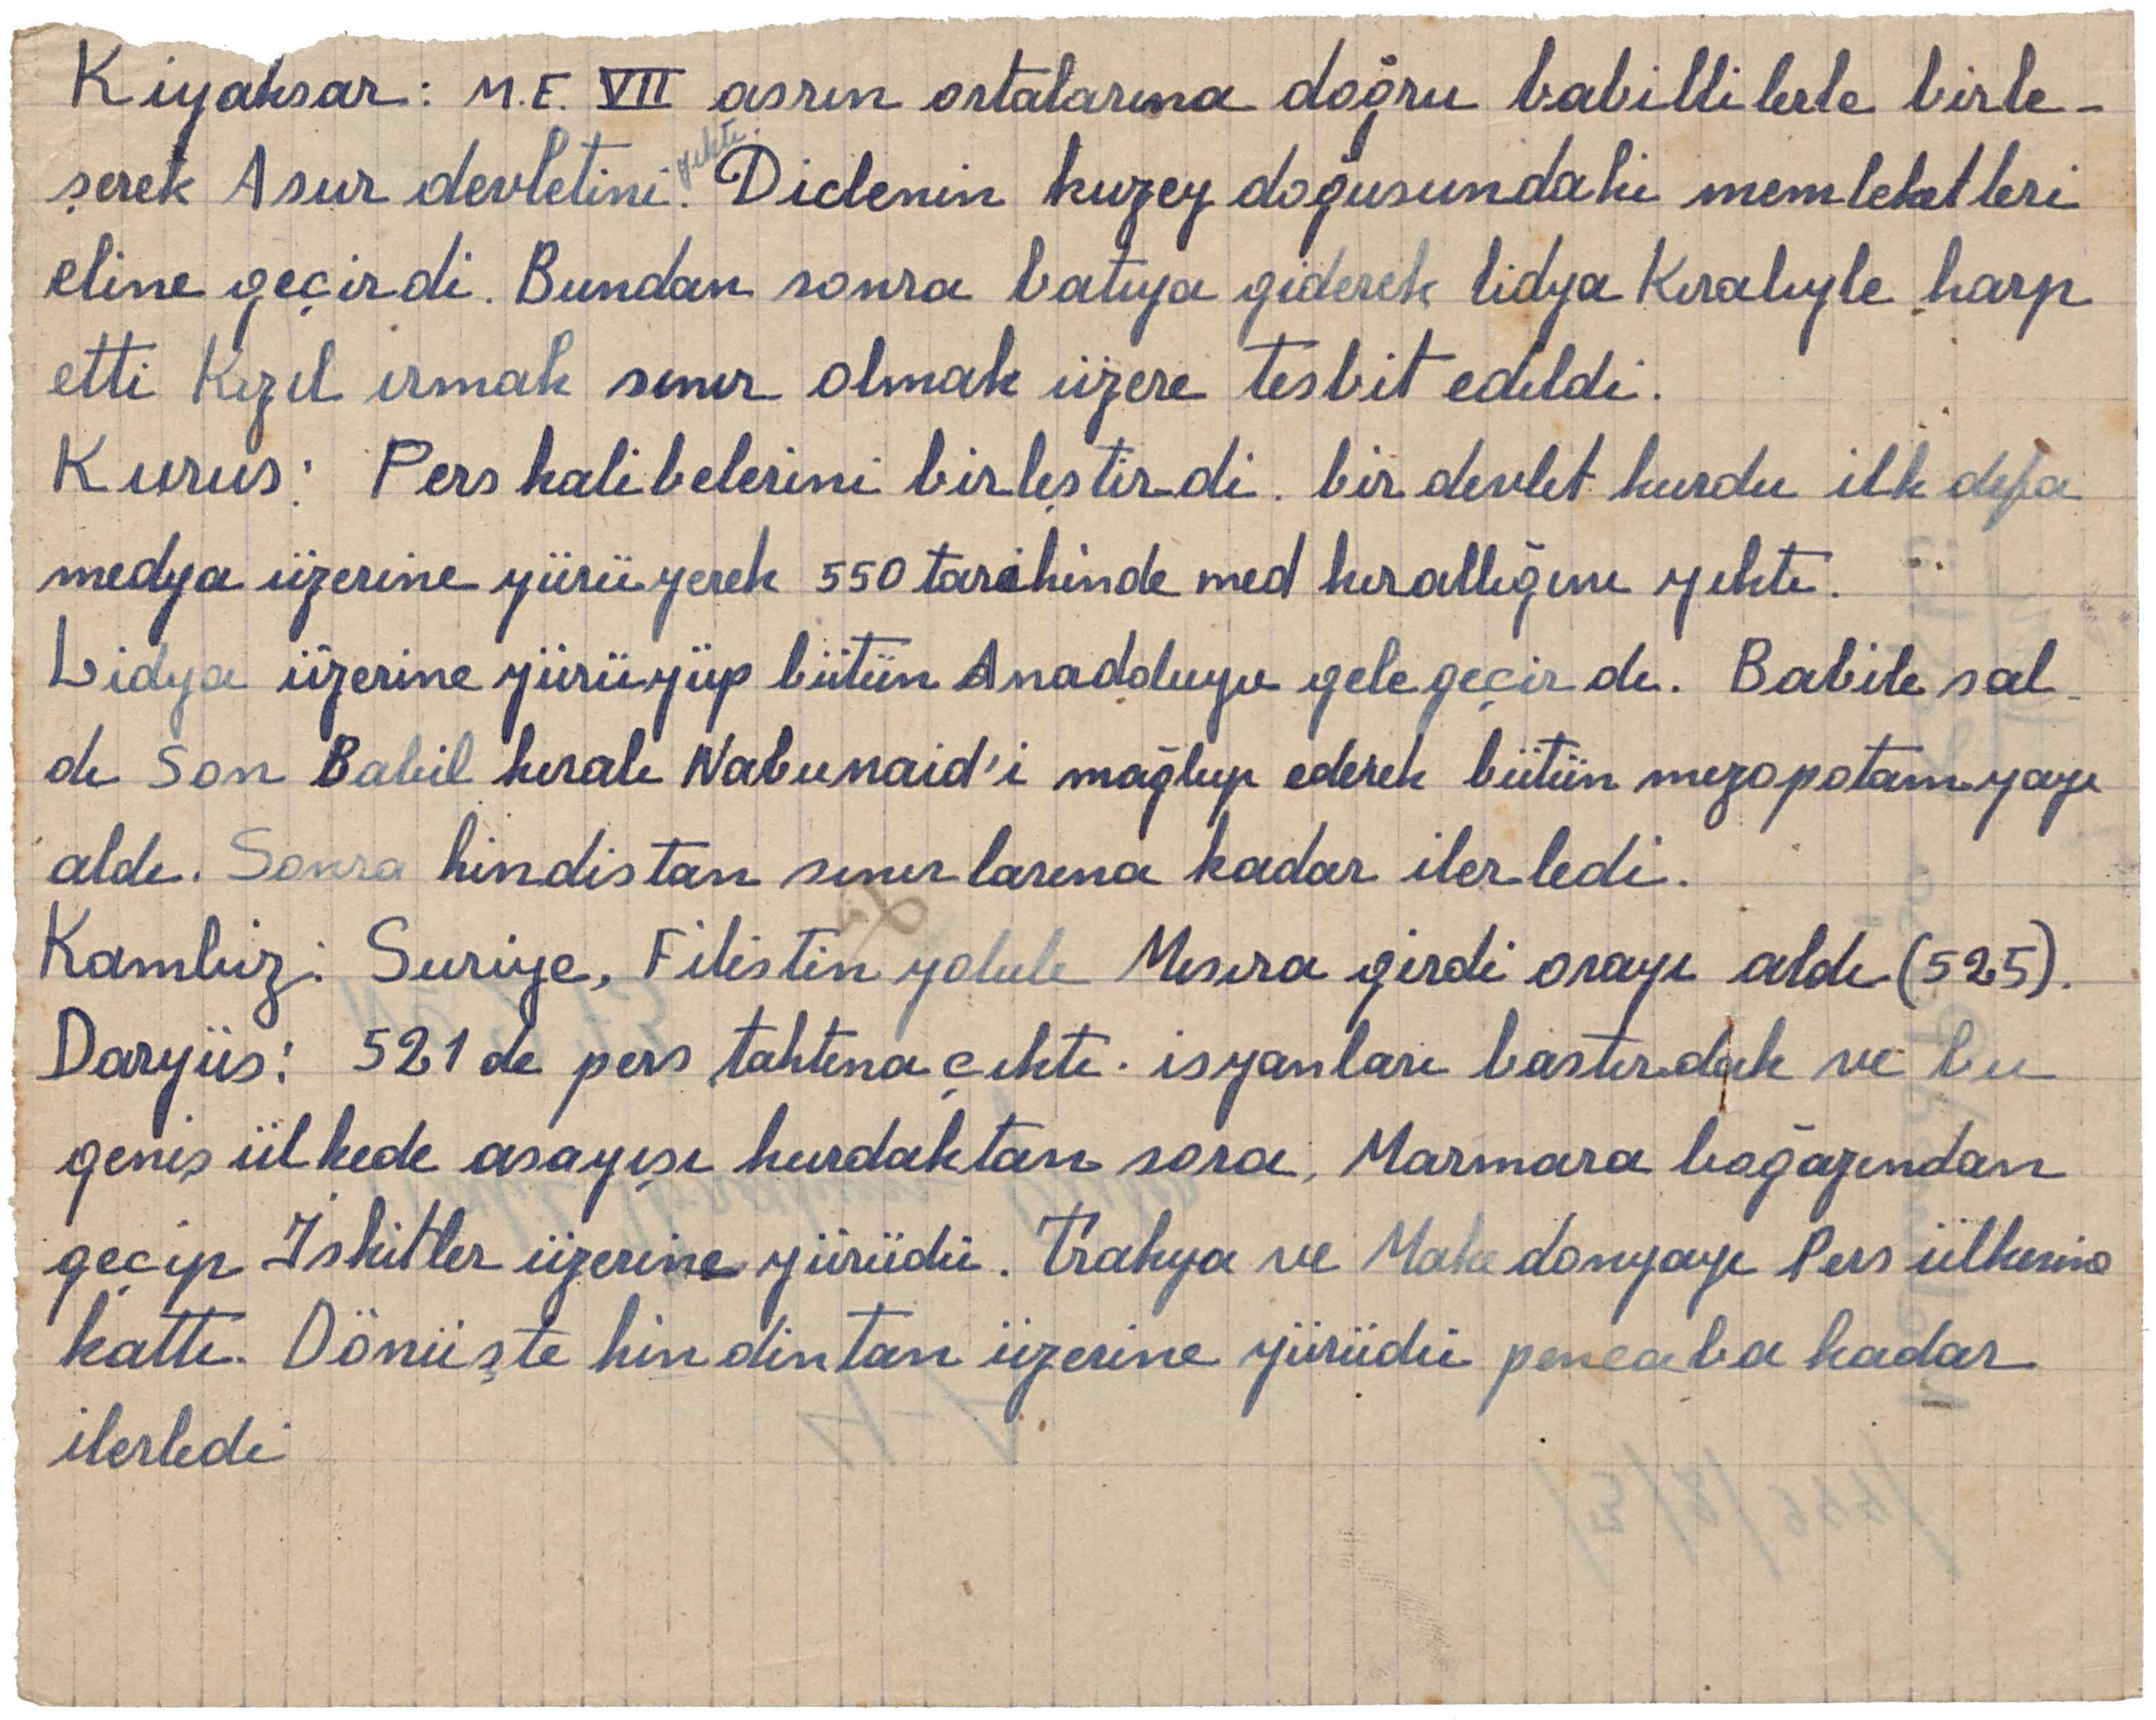 Kiyaksar: M.E. VII asrın ortalarına doğru babillilerle birle-
şerek Asur devletini yıktı. Diclenin kuzey doğusundaki memleketleri
eline geçirdi. Bundan sonra batıya giderek lidya Kıralıyle harp
etti Kızıl ırmak sınır olmak üzere tesbit edildi.
Kurus: Pers kalibelerini birleştirdi. bir devlet kurdu ilk defa
medya üzerine yürüyerek 550 tarihinde med kırallığını yıktı.
Lidya üzerine yürüyüp bütün Anadoluyu gelegeçirdi. Babile sal-
dı Son Babil kıralı Nabunaid'i mağlup ederek bütün mezopotamyayı
aldı. Sonra hindistan sınırlarına kadar ilerledi.
Kambiz: Suriye, Filistin yolule Mısıra girdi orayı aldı (525).
Daryüs: 521 de pers tahtına çıktı. isyanları bastırdık ve bu
geniş ülkede asayışı kurdaktan sora, Marmara boğazından
geçip İskitler üzerine yürüdü. Trakya ve Makedonyayı Pers ülkesine
kattı. Dönüşte hindintan üzerine yürüdü pencaba kadar
ilerledi